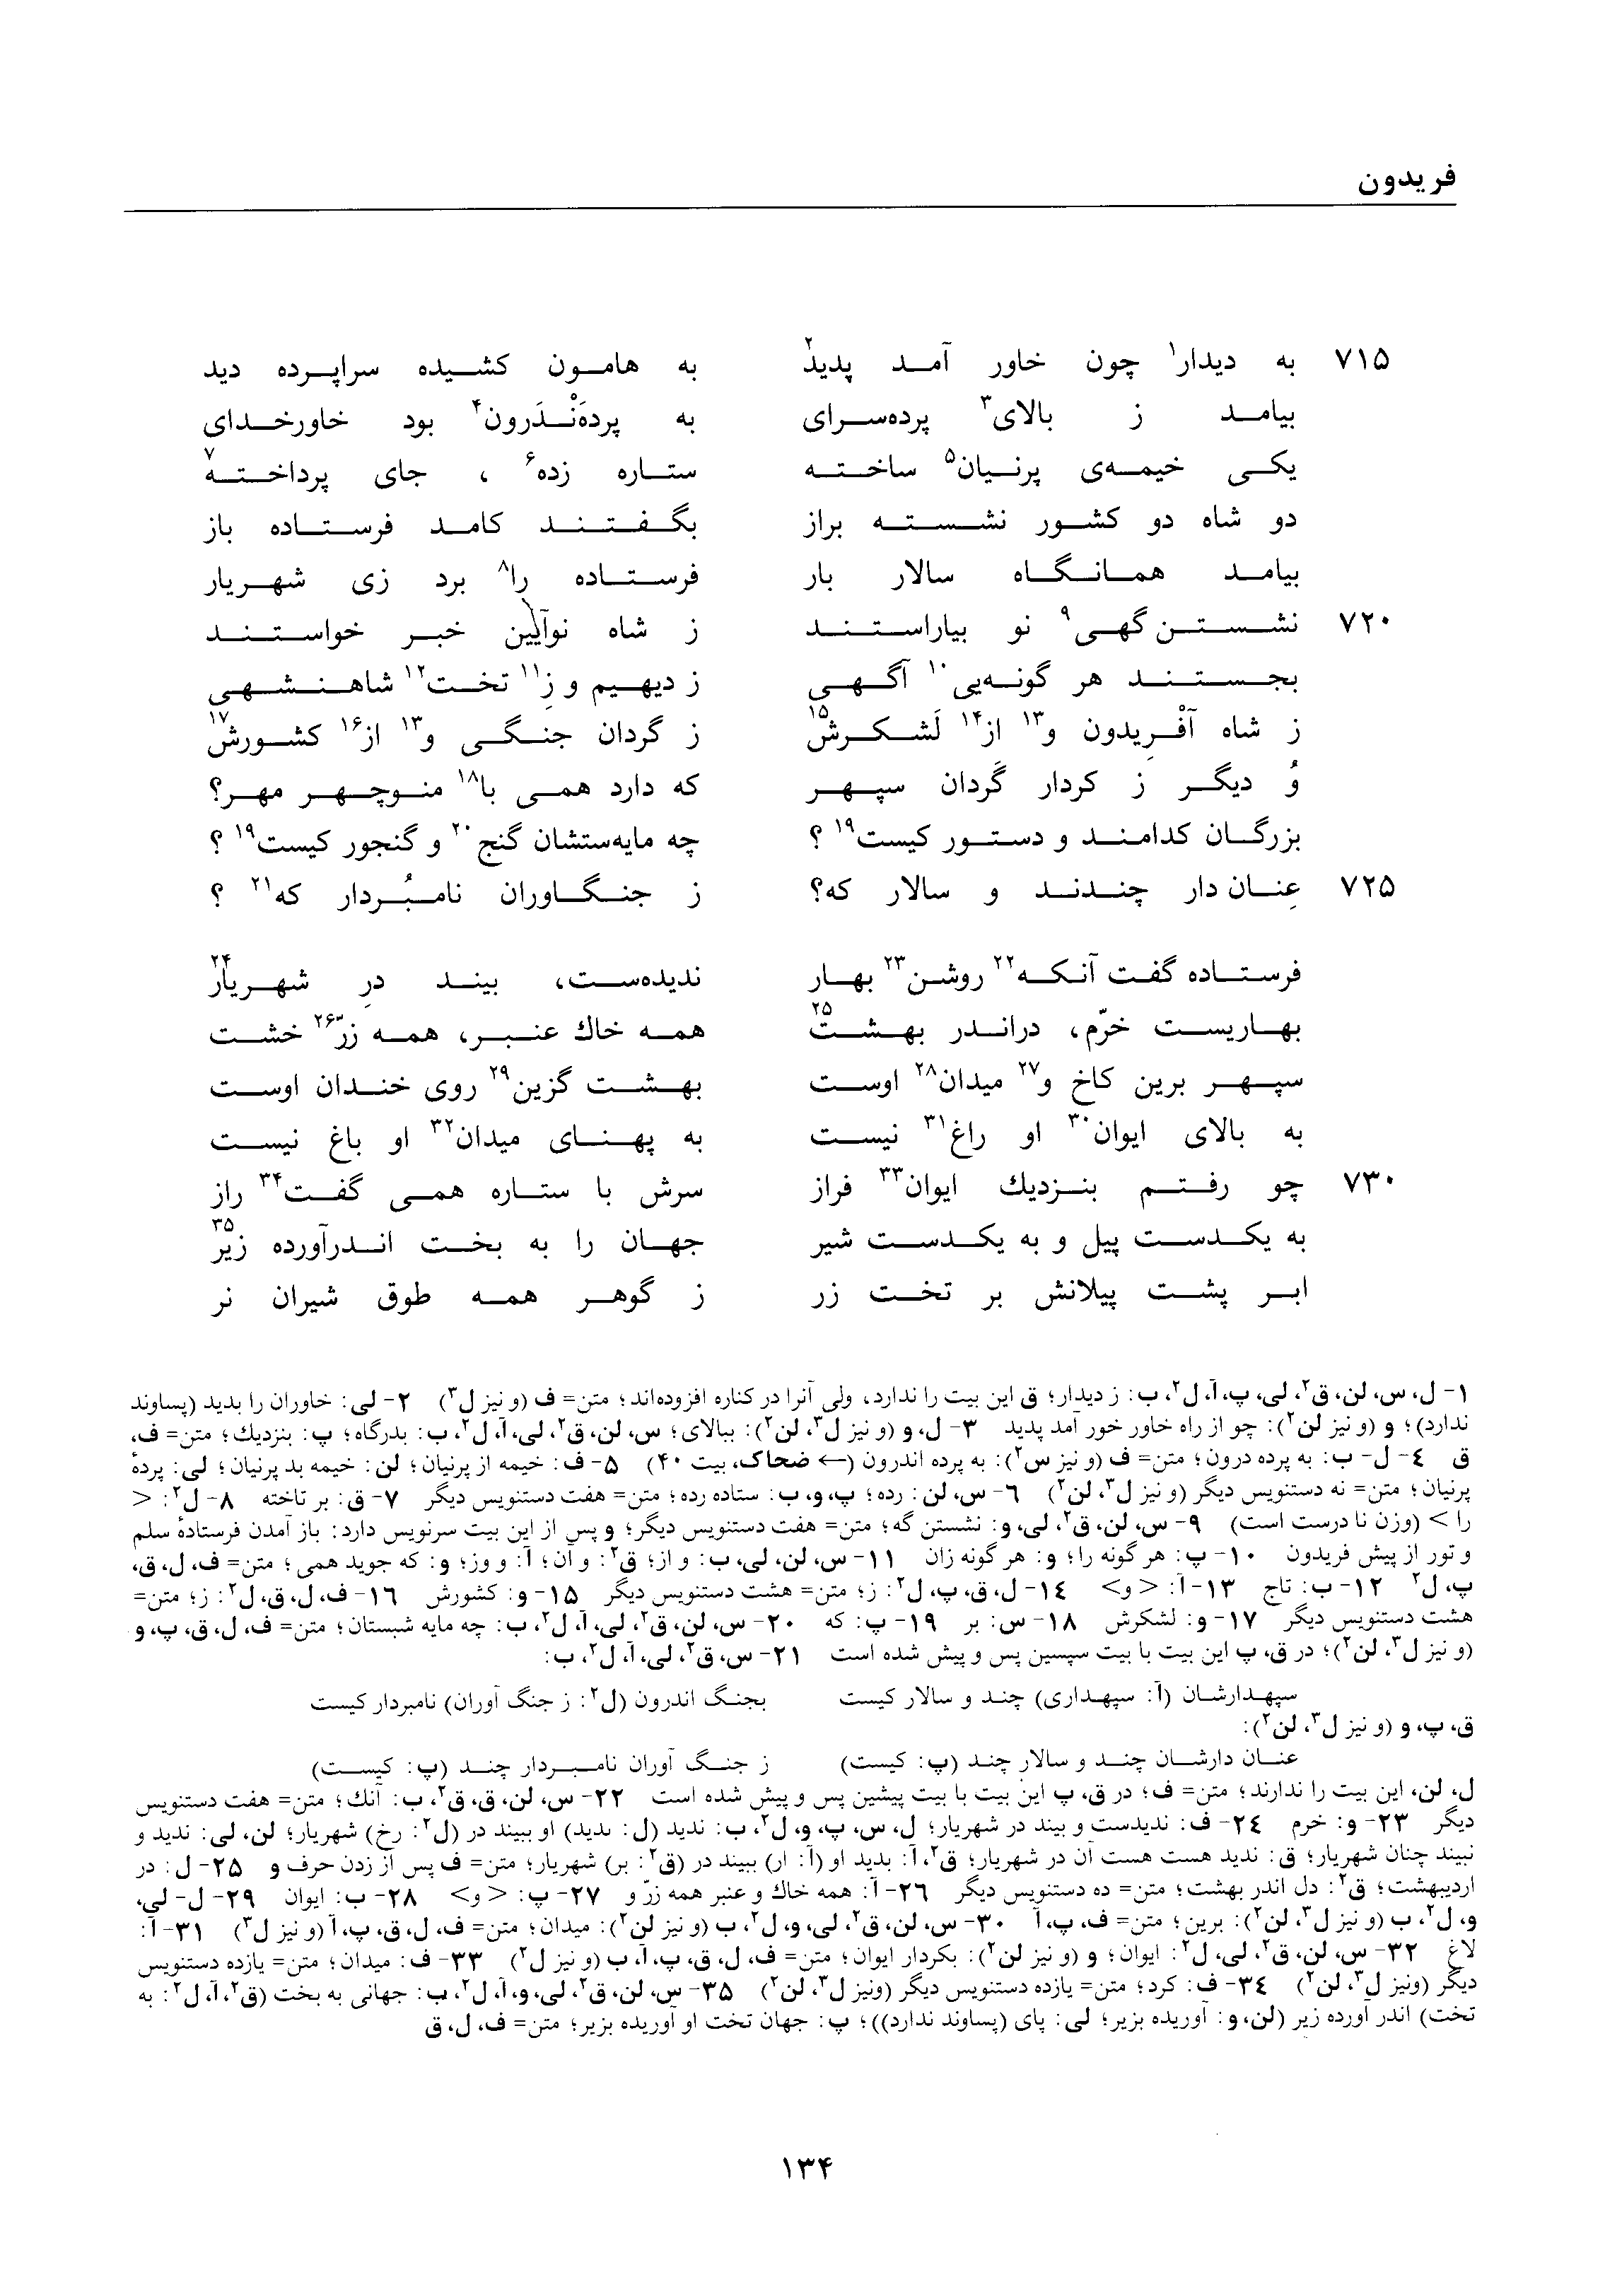 فریدون
۷۱۵ به دیدار۱ چون خاور آمد پدید۲ به هامون کشیده سراپرده دید
بیامد ز بالای۳ پرده‌سرای به پردَنْدَرون۴ بود خاورخدای
یکی خیمه‌ی پرنیان۵ ساخته ستاره زده۶ ، جای پرداخته۷
دو شاه دو کشور نشسته براز بگفتند کامد فرستاده باز
بیامد همانگاه سالار بار فرستاده را۸ برد زی شهریار
۷۲۰ نشستن گهی۹ نو بیاراستند ز شاه نوآیین خبر خواستند
بجستند هر گونه‌یی۱۰ آگهی ز دیهیم و زِ۱۱ تخت۱۲ شاهنشهی
ز شاه آفْرِیدون و۱۳ از۱۴ لَشکرش۱۵ ز گردان جنگی و۱۳ از۱۶ کشورش۱۷
وُ دیگر ز کردار گَردان سپهر که دارد همی با۱۸ منوچهر مهر؟
بزرگان کدامند و دستور کیست۱۹ ؟ چه مایه‌ستشان گنج۲۰ و گنجور کیست۱۹ ؟
۷۲۵ عِنان دار چندند و سالار که؟ ز جنگاوران نامبُردار که۲۱ ؟
فرستاده گفت آنکه۲۲ روشن۲۳ بهار ندیده‌ست، بیند درِ شهریار۲۴
بهاریست خرّم، دراندر بهشت۲۵ همه خاك عنبر، همه زرّ۲۶ خشت
سپهر برین کاخ و۲۷ میدان۲۸ اوست بهشت گزین۲۹ روی خندان اوست
به بالای ایوان۳۰ او راغ۳۱ نیست به پهنای میدان۳۲ او باغ نیست
۷۳۰ چو رفتم بنزدیك ایوان۳۳ فراز سرش با ستاره همی گفت۳۴ راز
به یکدست پیل و به یکدست شیر جهان را به بخت اندرآورده زیر۳۵
ابر پشت پیلانش بر تخت زر ز گوهر همه طوق شیران نر
۱- ل، س، لن، ق۲، لی، پ، آ، ل۲، ب: ز دیدار؛ ق این بیت را ندارد، ولی آنرا در کناره افزوده‌اند؛ متن= ف (و نیز ل۳) ۲- لی: خاوران را بدید (پساوند
ندارد)؛ و (و نیز لن۲): چو از راه خاور خور آمد پدید ۳- ل، و (و نیز ل۳، لن۲): ببالای؛ س، لن، ق۲، لی، آ، ل۲، ب: بدرگاه؛ پ: بنزدیك؛ متن= ف،
ق ۴- ل- ب: به پرده درون؛ متن= ف (و نیز س۲): به پرده اندرون (← ضحاك، بیت ۴۰) ۵- ف: خیمه از پرنیان؛ لن: خیمه بد پرنیان؛ لی: پردهٔ
پرنیان؛ متن= نه دستنویس دیگر (و نیز ل۳، لن۲) ۶- س، لن: رده؛ پ، و، ب: ستاده رده؛ متن= هفت دستنویس دیگر ۷- ق: بر تاخته ۸- ل۲: <
را > (وزن نا درست است) ۹- س، لن، ق۲، لی، و: نشستن گه؛ متن= هفت دستنویس دیگر؛ و پس از این بیت سرنویس دارد: باز آمدن فرستادهٔ سلم
و تور از پیش فریدون ۱۰- پ: هر گونه را؛ و: هر گونه زان ۱۱- س، لن، لی، ب: و از؛ ق۲: و آن؛ آ: و وز؛ و: که جوید همی؛ متن= ف، ل، ق،
پ، ل۲ ۱۲- ب: تاج ۱۳- آ: <و> ۱۴- ل، ق، پ، ل۲: ز؛ متن= هشت دستنویس دیگر ۱۵- و: کشورش ۱۶- ف، ل، ق، ل۲: ز؛ متن=
هشت دستنویس دیگر ۱۷- و: لشکرش ۱۸- س: بر ۱۹- پ: که ۲۰- س، لن، ق۲، لی، آ، ل۲، ب: چه مایه شبستان؛ متن= ف، ل، ق، پ، و
(و نیز ل۳، لن۲)؛ در ق، پ این بیت با بیت سپسین پس و پیش شده است ۲۱- س، ق۲، لی، آ، ل۲، ب:
سپهدارشان (آ: سپهداری) چند و سالار کیست بجنگ اندرون (ل۲: ز جنگ آوران) نامبردار کیست
ق، پ، و (و نیز ل۳، لن۲):
عنان دارشان چند و سالار چند (پ: کیست) ز جنگ آوران نامبردار چند (پ: کیست)
ل، لن، این بیت را ندارند؛ متن= ف؛ در ق، پ این بیت با بیت پیشین پس و پیش شده است ۲۲- س، لن، ق، ق۲، ب: آنك؛ متن= هفت دستنویس
دیگر ۲۳- و: خرم ۲۴- ف: ندیدست و بیند در شهریار؛ ل، س، پ، و، ل۲، ب: ندید (ل: بدید) او ببیند در (ل۲: رخ) شهریار؛ لن، لی: ندید و
نبیند چنان شهریار؛ ق: ندید هست هست آن در شهریار؛ ق۲، آ: بدید او (آ: ار) ببیند در (ق۲: بر) شهریار؛ متن= ف پس از زدن حرف و ۲۵- ل: در
اردیبهشت؛ ق۲: دل اندر بهشت؛ متن= ده دستنویس دیگر ۲۶- آ: همه خاك و عنبر همه زرّ و ۲۷- پ: <و> ۲۸- ب: ایوان ۲۹- ل- لی،
و، ل۲، ب (و نیز ل۳، لن۲): برین؛ متن= ف، پ، آ ۳۰- س، لن، ق۲، لی، و، ل۲، ب (و نیز لن۲): میدان؛ متن= ف، ل، ق، پ، آ (و نیز ل۳) ۳۱- آ:
لاغ ۳۲- س، لن، ق۲، لی، ل۲: ایوان؛ و (و نیز لن۲): بکردار ایوان؛ متن= ف، ل، ق، پ، آ، ب (و نیز ل۳) ۳۳- ف: میدان؛ متن= یازده دستنویس
دیگر (ونیز ل۳، لن۲) ۳۴- ف: کرد؛ متن= یازده دستنویس دیگر (ونیز ل۳، لن۲) ۳۵- س، لن، ق۲، لی، و، آ، ل۲، ب: جهانی به بخت (ق۲، آ، ل۲: به
تخت) اندر آورده زیر (لن، و: آوریده بزیر؛ لی: پای (پساوند ندارد))؛ پ: جهان تخت او آوریده بزیر؛ متن= ف، ل، ق
۱۳۴